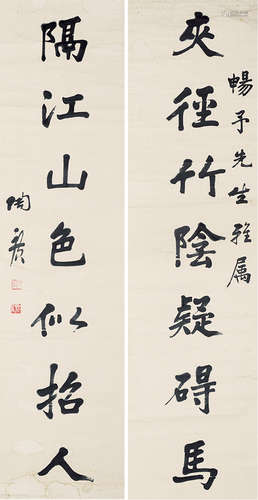 暢予先生雅属
夾徑竹陰疑碍馬
隔江山色似招人
陶